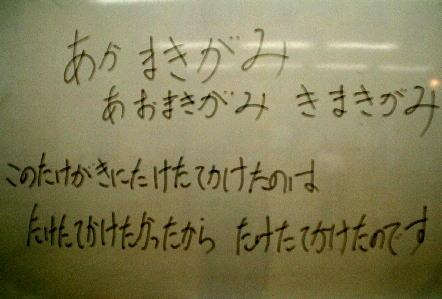 あかまきがみ
あおまきがみ きまきがみ
このたけがきにたけたてかけたのは
たけたてかけたかったから たけたてかけたのです